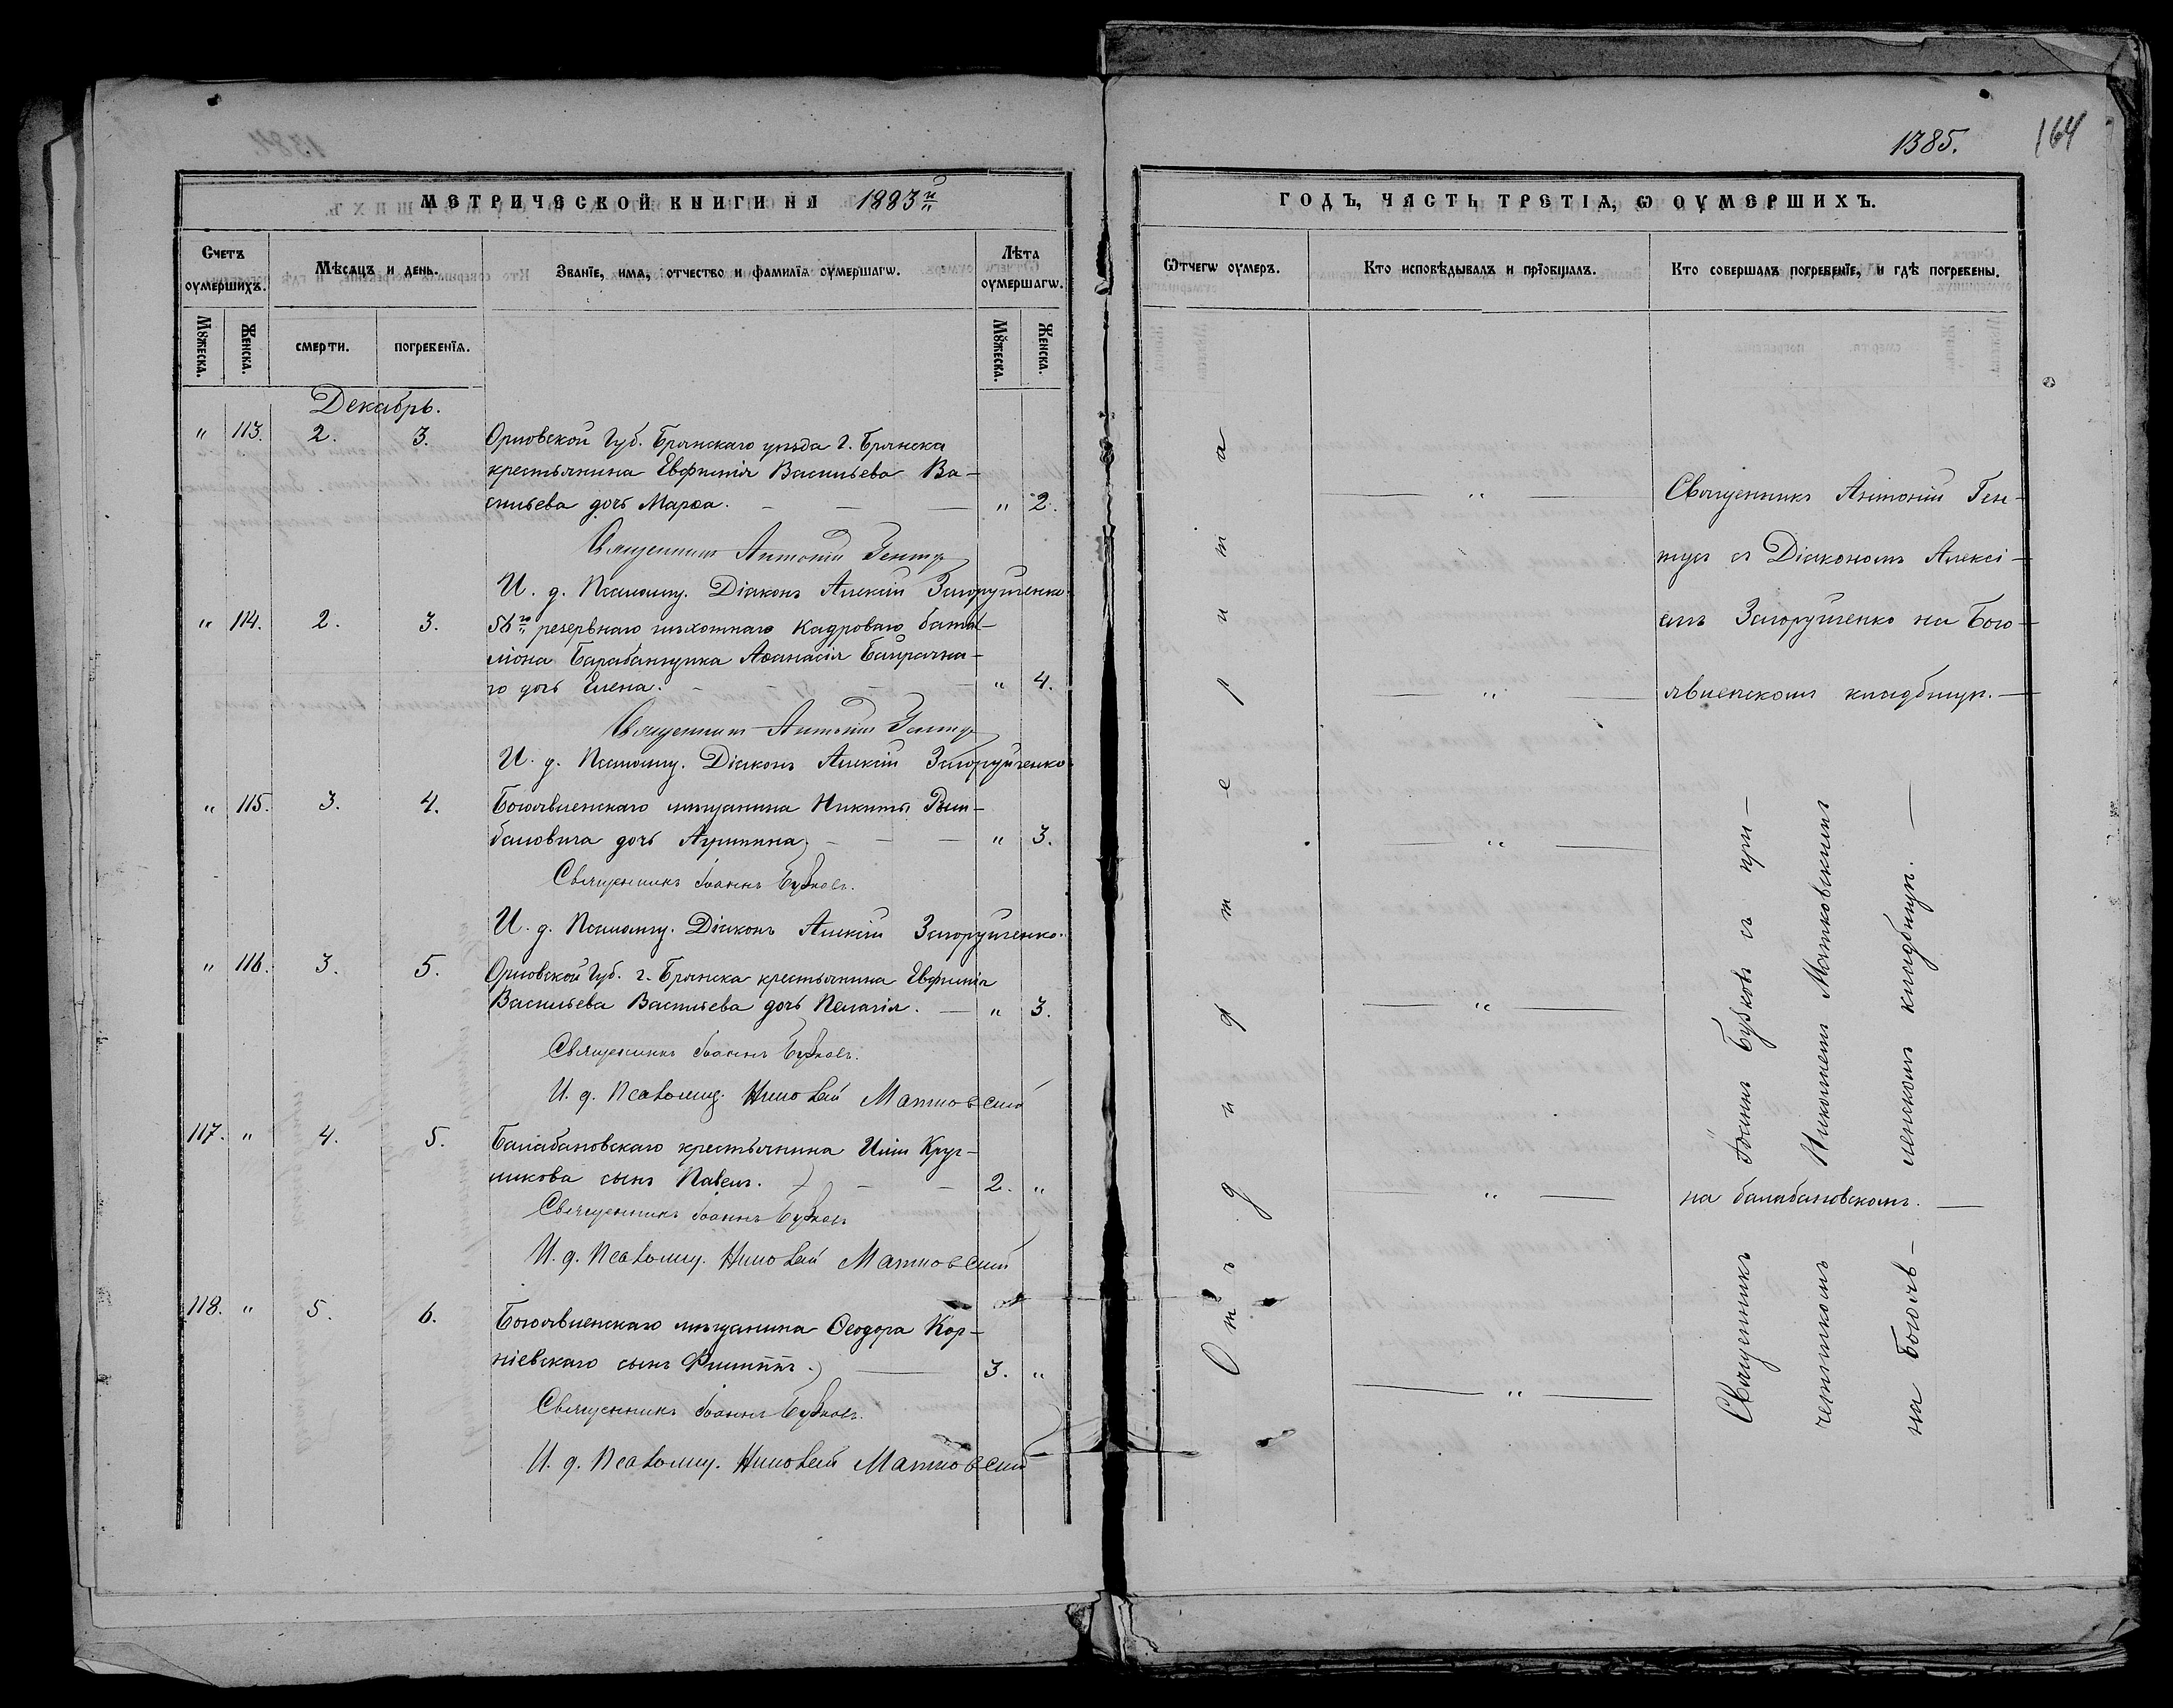 1385.
164
МЕТРИЧЕСКОЙ КНИГИ НА 1883й
Счетъ оумершихъ.
Мѣсяцъ и день.
Званїе, имя, отчество и фамилїя оумершагѡ.
Лѣта оумершагѡ.
Мꙋжеска.
Женска.
смерти.
погребенїя.
Мꙋжеска.
Женска.
Декабрь.
" 113. 2. 3. Орловской Губ. Брянскаго уѣзда г. Брянска
крестьянина Евфимія Васильева Ва-
сильева дочь Марѳа. — — — " 2.
Священникъ Антоній Гентуг
И. д. Псаломщ. Діаконъ Алексій Загоруйченко.
" 114. 2. 3. 56го резервнаго пѣхотнаго кадроваго батал-
ліона Барабанщика Аѳанасія Байрачна-
го дочь Елена. — — — " 4.
Священникъ Антоній Гентуг
И. д. Псаломщ. Діаконъ Алексій Загоруйченко.
" 115. 3. 4. Богоявленскаго мѣщанина Никиты
дочь Агриппина. — — — " 3.
Священникъ Іоаннъ Бужковъ.
И. д. Псаломщ. Діаконъ Алексій Загоруйченко.
" 116. 3. 5. Орловской Губ. г. Брянска крестьянина Евфимія
Васильева Васильева дочь Пелагія. — " 3.
Священникъ Іоаннъ Бужковъ.
И. д. Псаломщ. Николай Матковскій
117. " 4. 5. Балабановскаго крестьянина Иліи Круг-
ликова сынъ Павелъ. — — 2. "
Священникъ Іоаннъ Бужковъ
И. д. Псаломщ. Николай Матковскій
118. " 5. 6. Богоявленскаго мѣщанина Ѳеодора Кор-
ніевскаго сынъ Филиппъ. — 3. "
Священникъ Іоаннъ Бужковъ.
И. д. Псаломщ. Николай Матковскій
ГОДЪ, ЧАСТЬ ТРЕТІЯ, Ѡ ОУМЕРШИХЪ.
Ѿчегѡ оумеръ.
Кто исповѣдывалъ и прїобщалъ.
Кто совершалъ погребенїе, и гдѣ погребены.
Отъ дифтерита
— " —
Священникъ Антоній Ген-
туг съ Діакономъ Алексі-
емъ Загоруйченко на Бого-
— " —
явленскомъ кладбищѣ. —
— " —
— " —
— " —
на балабановскомъ. —
— " —
Священникъ Іоаннъ Бужковъ съ при-
четникомъ Николаемъ Матковскимъ
на Богояв-ленскомъ кладбищѣ. —